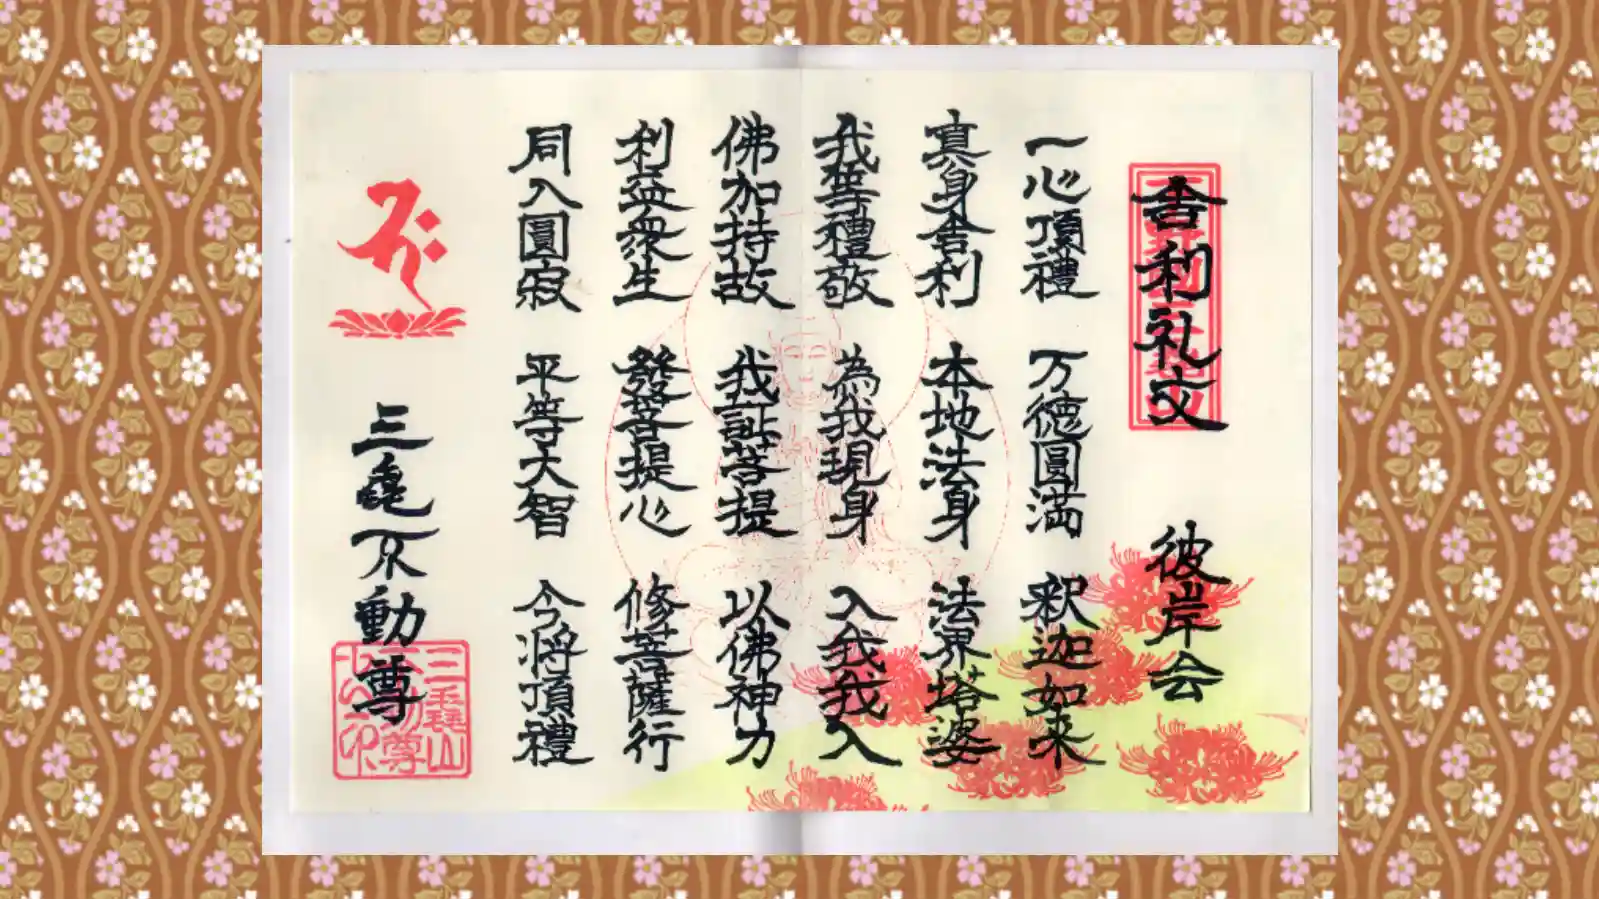 舎利礼文 彼岸会
一心頂禮 万徳圓満 釈迦如来
真身舎利 本地法身 法界塔婆
我等禮敬 為我現身 入我我入
佛加持故 我証菩提 以佛神力
利益衆生 發菩提心 修菩薩行
同入圓寂 平等大智 今将頂禮
三毳不動尊